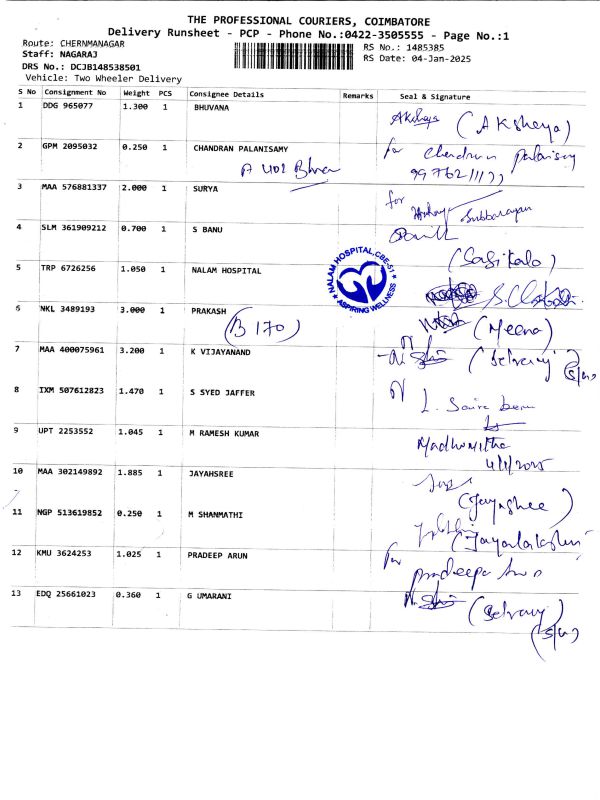 THE PROFESSIONAL COURIERS, COIMBATORE
Delivery Runsheet - PCP - Phone No.:0422-3505555 - Page No.:1
Route: CHERNMANAGAR
RS No.: 1485385
Staff: NAGARAJ
RS Date: 04-Jan-2025
DRS No.: DCJB148538501
Vehicle: Two Wheeler Delivery
S No Consignment No Weight PCS Consignee Details Remarks Seal & Signature
1 DDG 965077 1.300 1 BHUVANA
Akshaya (AKshaya)
2 GPM 2095032 0.250 1 CHANDRAN PALANISAMY
for
A 402
3 MAA 576881337 2.000 1 SURYA
for
Subbarayan
4 SLM 361909212 0.700 1 S BANU
(Sasikala)
5 TRP 6726256 1.050 1 NALAM HOSPITAL
NALAM HOSPITAL, CBE-51
ASPIRING WELLNESS
6 NKL 3489193 3.000 1 PRAKASH
(B 170)
(Meena)
7 MAA 400075961 3.200 1 K VIJAYANAND
8 IXM 507612823 1.470 1 S SYED JAFFER
9 UPT 2253552 1.045 1 M RAMESH KUMAR
Madhumitha
4/1/2025
10 MAA 302149892 1.885 1 JAYAHSREE
(Jayashree)
11 NGP 513619852 0.250 1 M SHANMATHI
12 KMU 3624253 1.025 1 PRADEEP ARUN
for
13 EDQ 25661023 0.360 1 G UMARANI